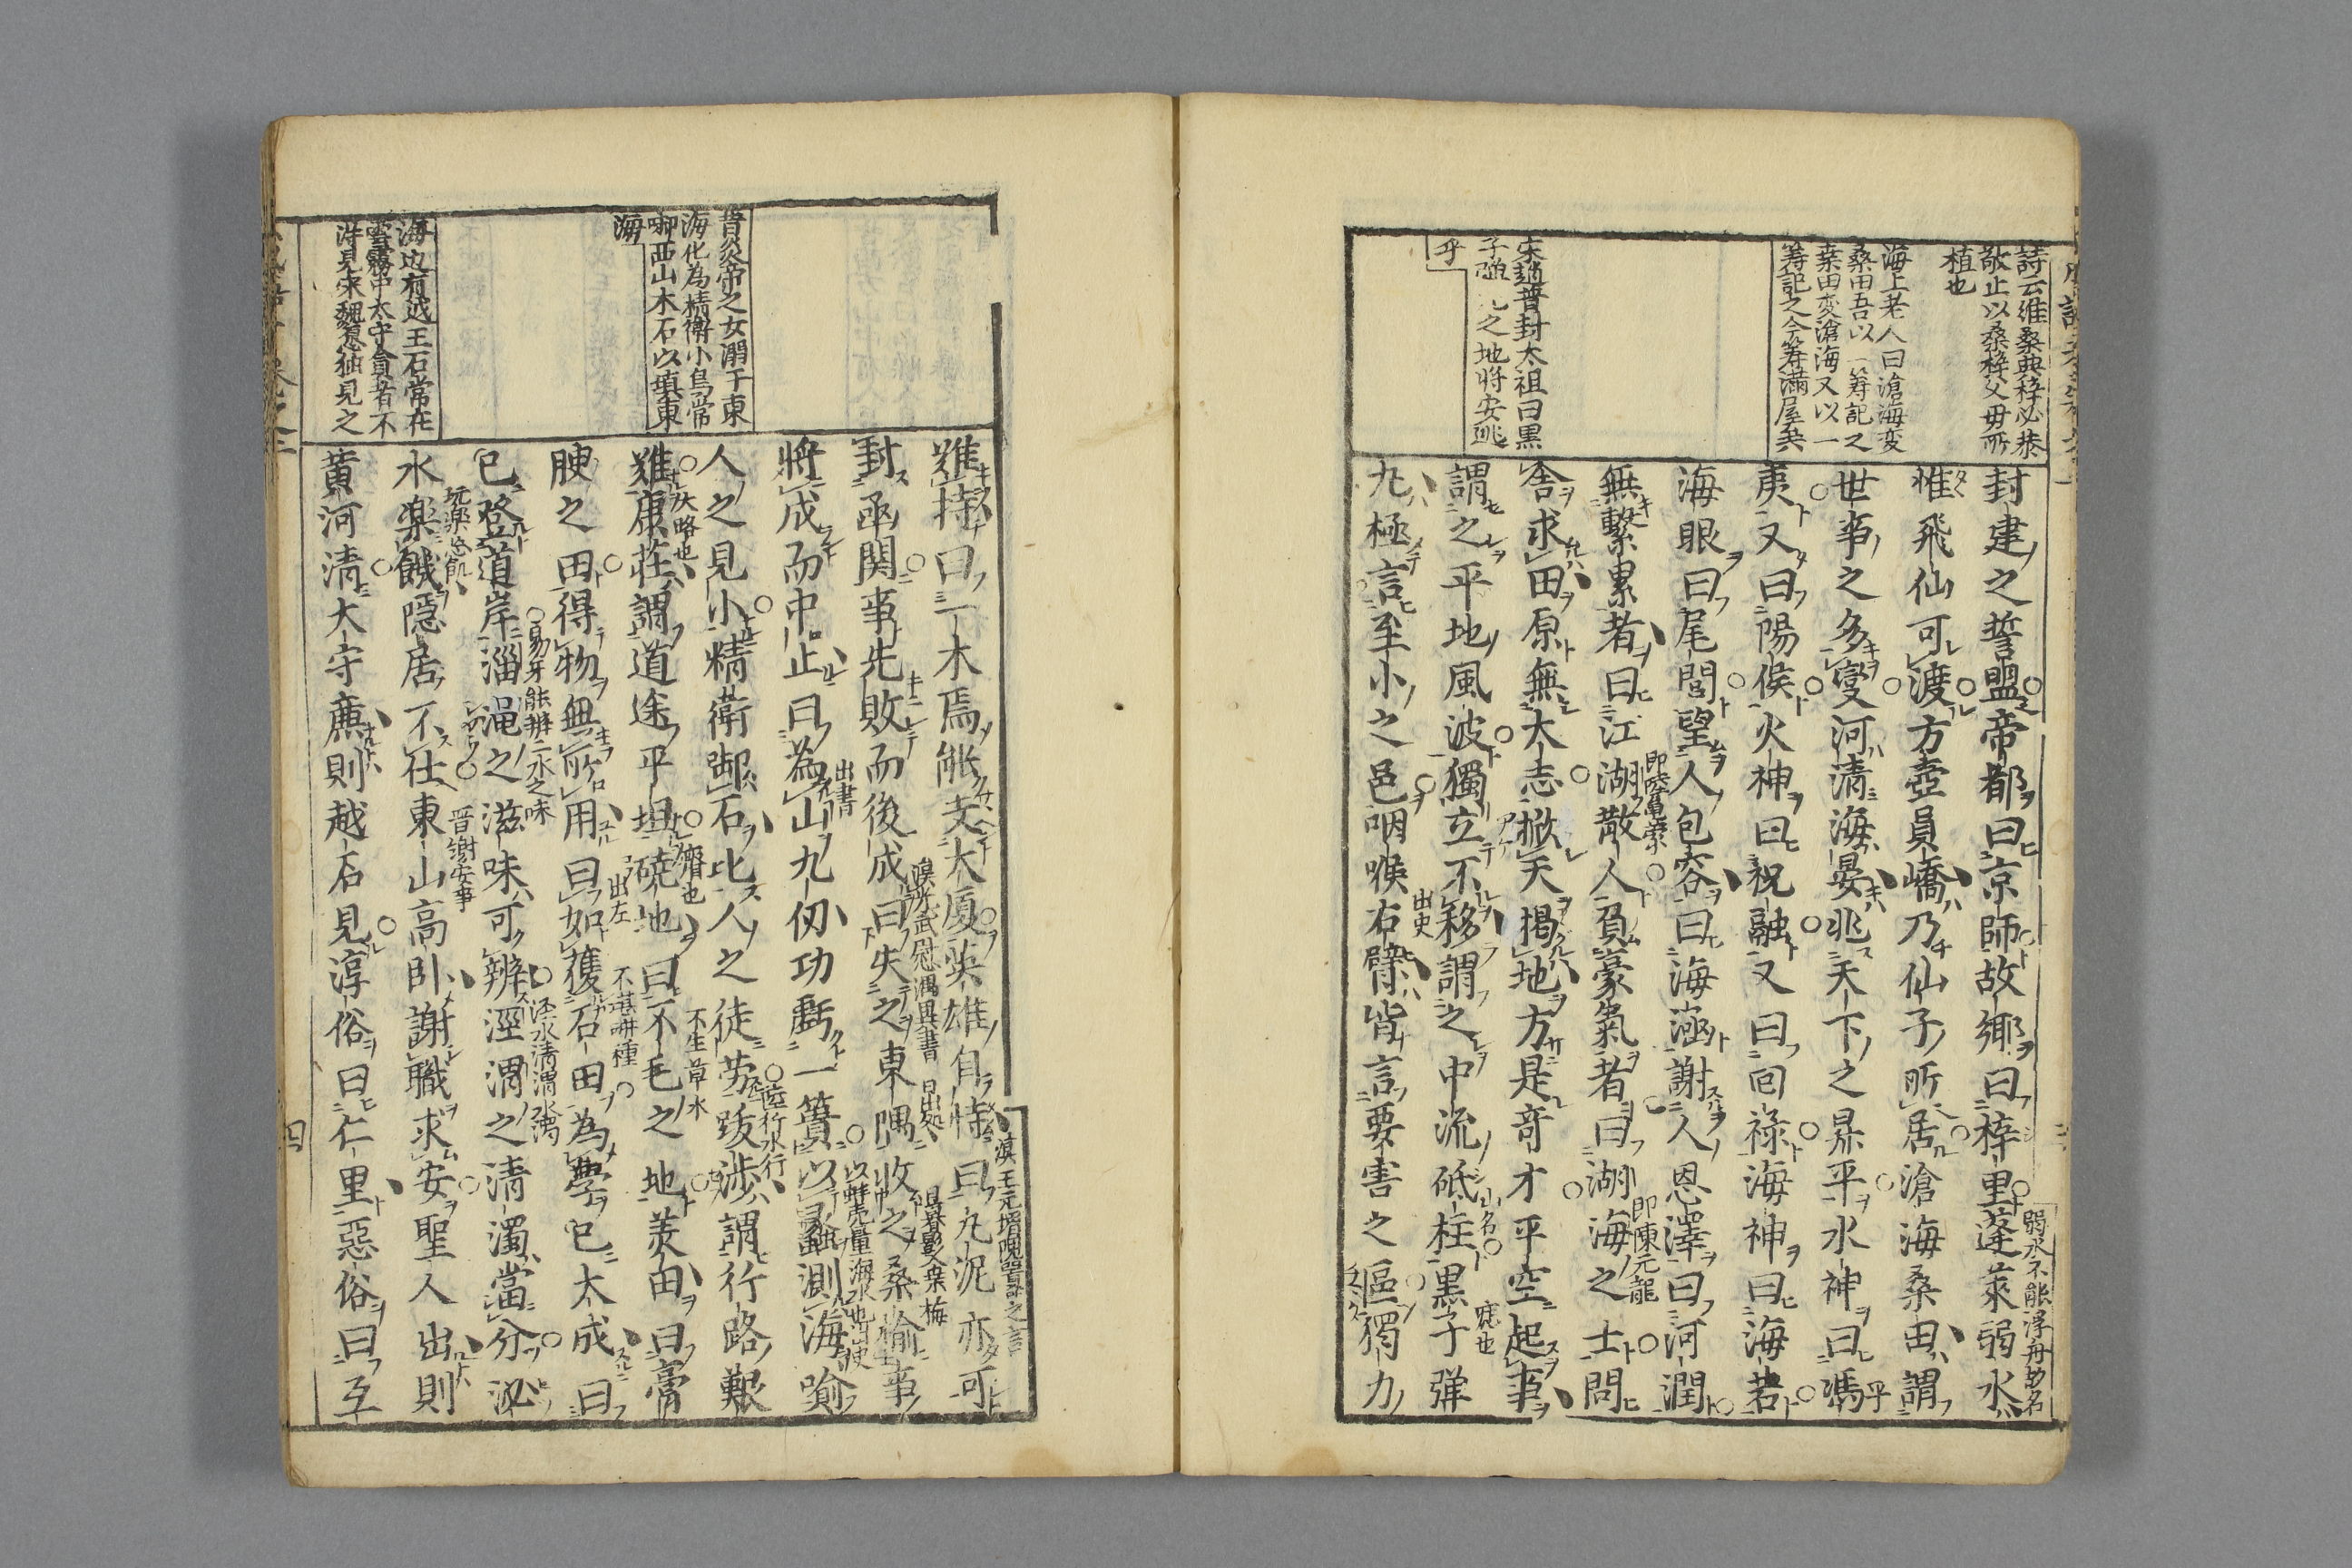 詩云維桑與梓必恭
敬止以桑梓父母所
植也
海上老人曰滄海変
桑田吾以一筭記之
桒田変滄海又以一
筭記之今筭滿屋矣
宋趙普封太祖曰黒
子弾丸之地将安逃
乎
封建之誓盟帝都曰京師故郷曰梓里蓬萊弱水
弱水不能浮舟故名
惟飛仙可渡方壺員嶠乃仙子所居滄海桑田謂
世事之多變河清海晏兆天下之昇平水神曰馮
夷又曰陽侯火神曰祝融又曰囘祿海神曰海若
海眼曰尾閭望人包容曰海涵謝人恩澤曰河潤
無繫累者曰江湖散人負豪氣者曰湖海之士問
即陸龜蒙
即陳元龍
舎求田原無大志掀天掲地方是竒才平空起事
謂之平地風波獨立不移謂之中流砥柱黒子弾
山名
痣也
九極言至小之邑咽喉右臂皆言要害之區獨力
出史
昔炎帝之女溺于東
海化為精衛小鳥常
啣西山木石以填東
海
海边有越王石常在
雲霧中太守貪者不
淂見宋魏愿独見之
難持曰一木焉能支大厦英雄自恃曰丸泥亦可
漢王元増隗囂之言
封函関事先敗而後成曰失之東隅收之桑榆事
漢光武慰馮異書
日出処
日暮影入桒榆
将成而中止曰為山九仭功虧一簣以蠡測海喩
出書
以蛙売量海水也出史
人之見小精衛啣石比人之徒劳跋渉謂行路艱
陸行水行
難康莊謂道途平坦磽地曰不毛之地美田曰膏
大略也
瘠也
不生草木
腴之田得物無所用曰如獲石田為學已太成曰
出左
不堪耕種
已登道岸淄澠之滋味可辨涇渭之清濁當分泌
易牙能辨二水之味
涇水清渭水濁
水楽饑隠居不仕東山高卧謝職求安聖人出則
玩楽忘飢
晋謝安事
黄河清大守廉則越石見淳俗曰仁里惡俗曰互
四